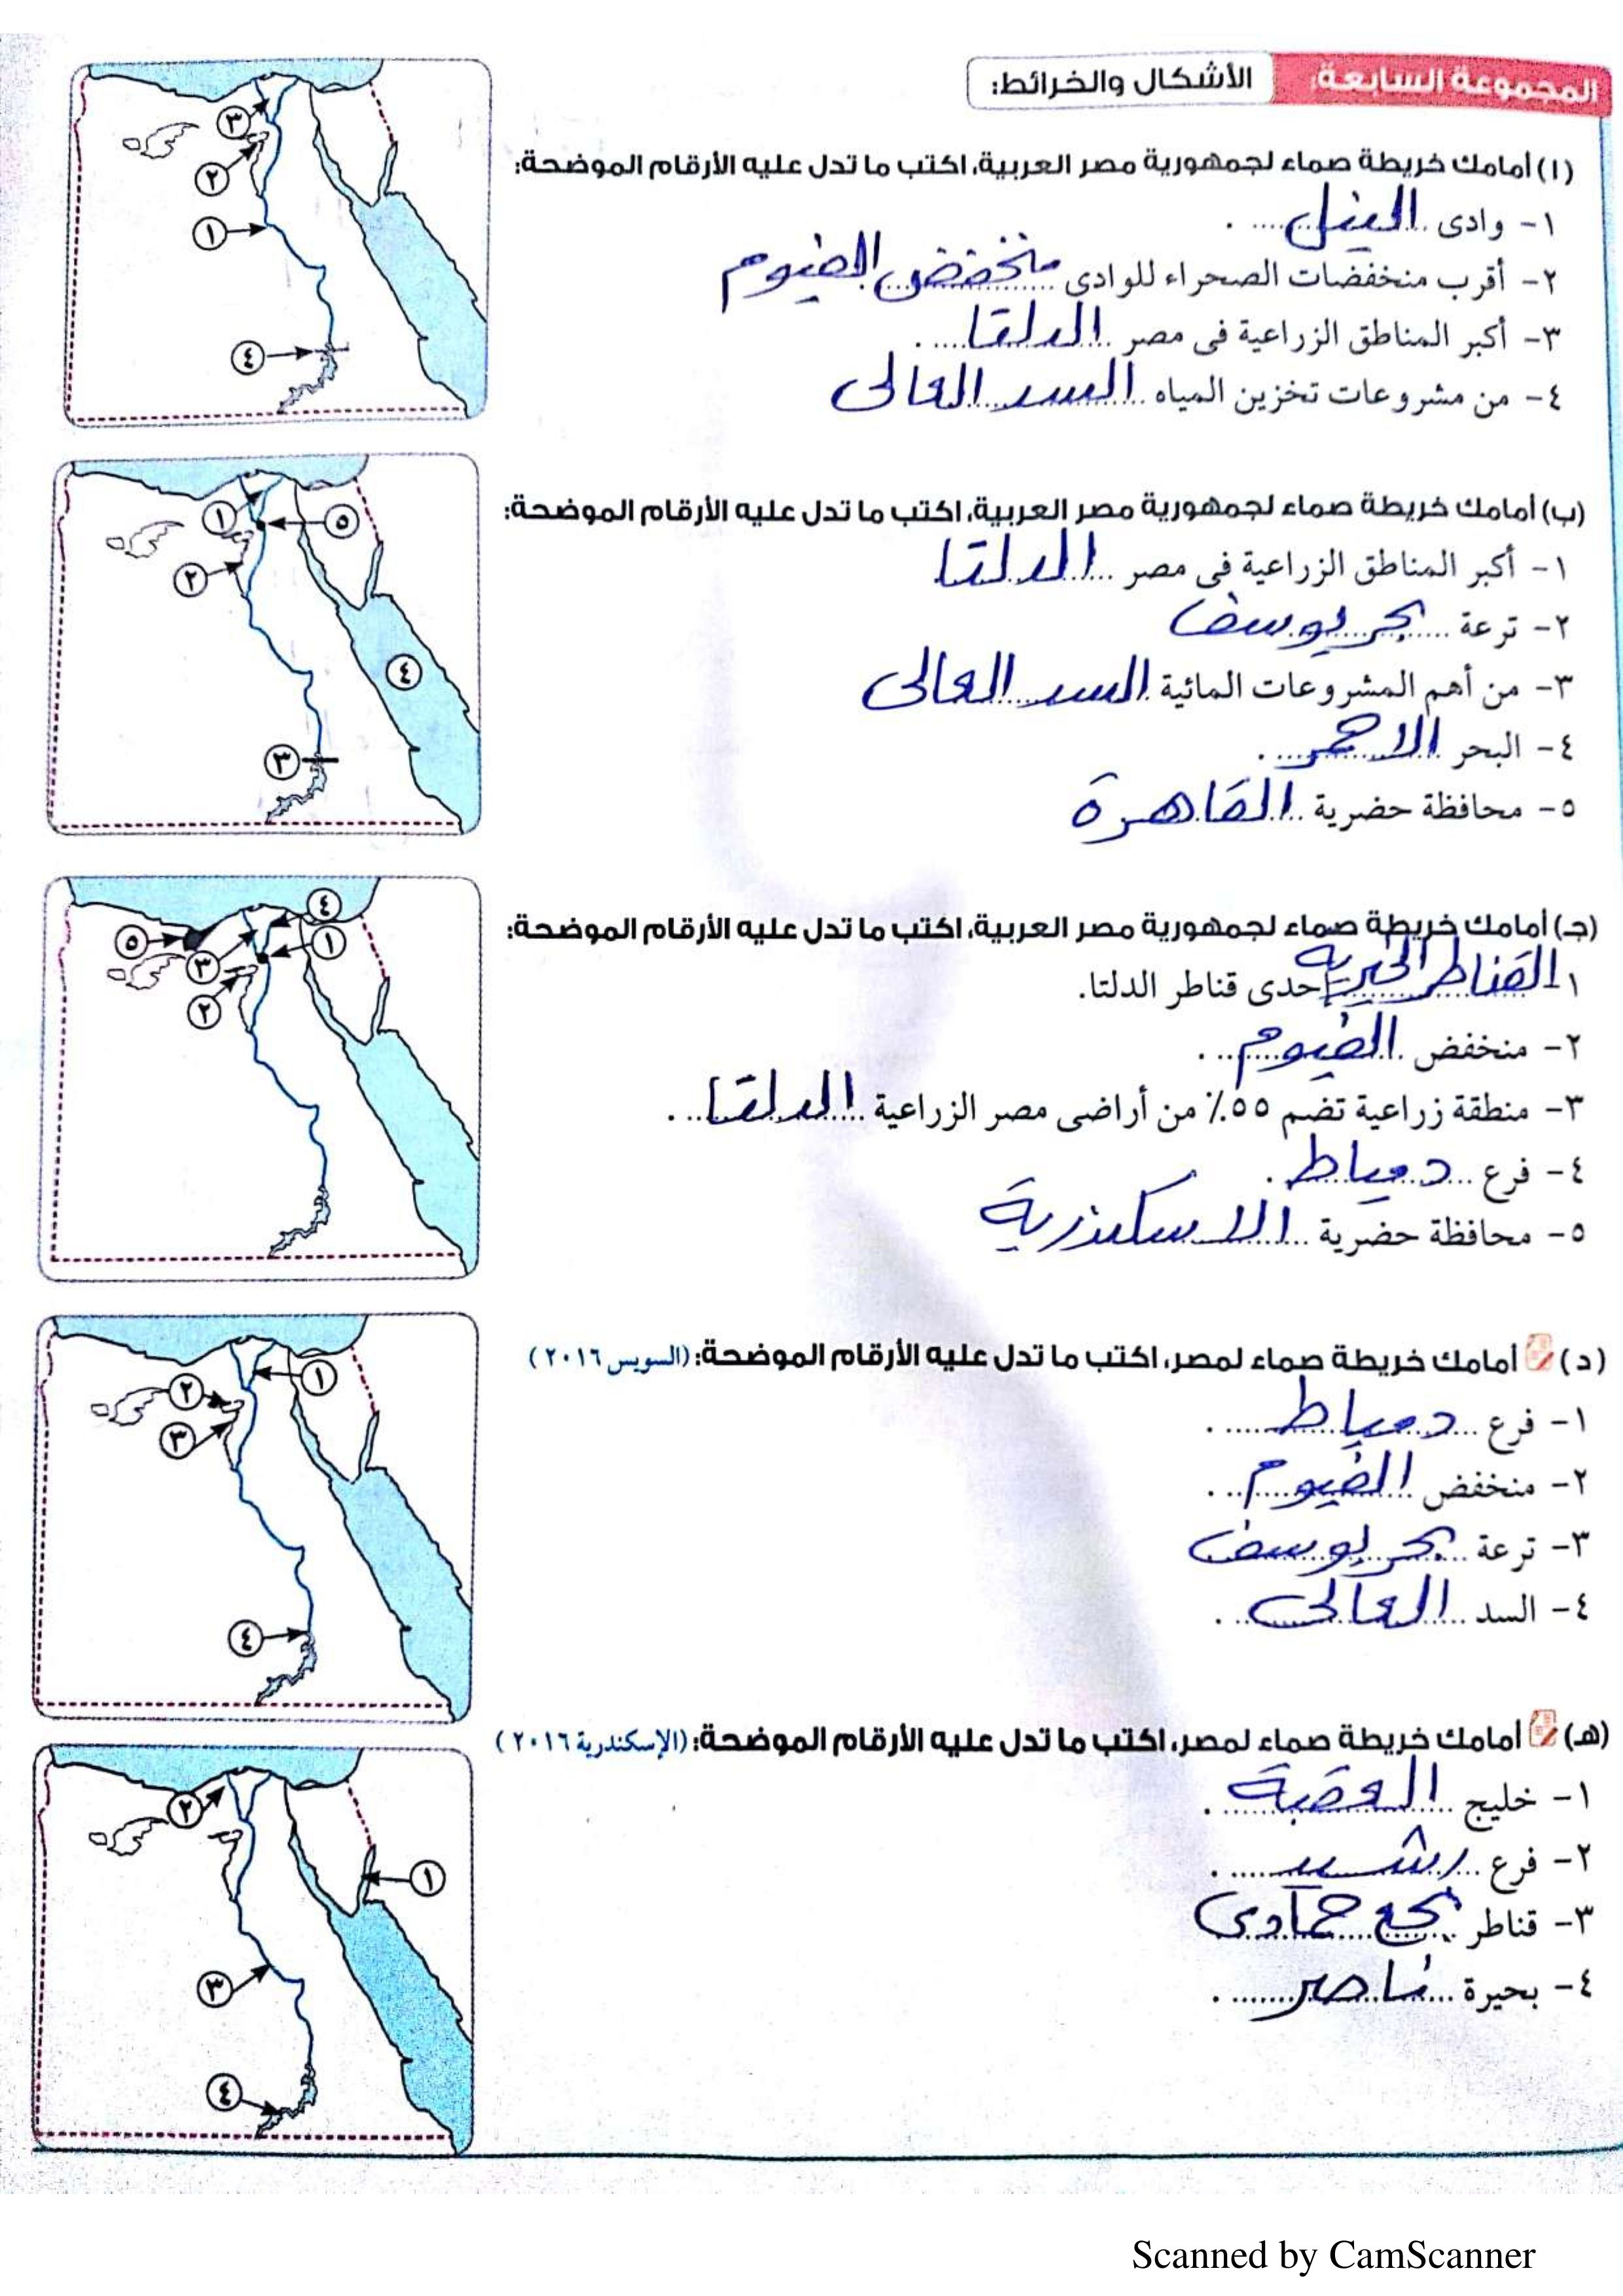 المجموعة السابعة: الأشكال والخرائط:
(ا) أمامك خريطة صماء لجمهورية مصر العربية، اكتب ما تدل عليه الأرقام الموضحة:
١- وادى النيل .
٢- أقرب منخفضات الصحراء للوادى منخفض الفيوم
٣- أكبر المناطق الزراعية فى مصر الدلتا .
٤- من مشروعات تخزين المياه السد العالى
٣
٢
١
٤
(ب) أمامك خريطة صماء لجمهورية مصر العربية، اكتب ما تدل عليه الأرقام الموضحة:
١- أكبر المناطق الزراعية فى مصر الدلتا
٢- ترعة بحر يوسف
٣- من أهم المشروعات المائية السد العالى
٤- البحر الاحمر .
٥- محافظة حضرية القاهرة
١
٥
٢
٤
٣
(جـ) أمامك خريطة صماء لجمهورية مصر العربية، اكتب ما تدل عليه الأرقام الموضحة:
١ القناطر الخيرية إحدى قناطر الدلتا.
٢- منخفض الفيوم .
٣- منطقة زراعية تضم ٥٥٪ من أراضى مصر الزراعية الدلتا .
٤- فرع دمياط .
٥- محافظة حضرية الاسكندرية
٤
٥
١
٣
٢
(د) أمامك خريطة صماء لمصر، اكتب ما تدل عليه الأرقام الموضحة: (السويس ٢٠١٦)
١- فرع دمياط .
٢- منخفض الفيوم .
٣- ترعة بحر يوسف
٤- السد العالى .
١
٢
٣
٤
(هـ) أمامك خريطة صماء لمصر، اكتب ما تدل عليه الأرقام الموضحة: (الإسكندرية ٢٠١٦)
١- خليج العقبة .
٢- فرع رشيد .
٣- قناطر نجع حمادى
٤- بحيرة ناصر .
٢
١
٣
٤
Scanned by CamScanner